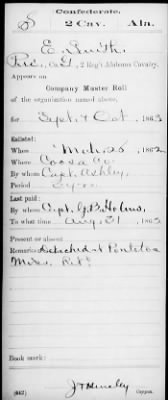 Confederate.
S 2 Cav. Ala.
E. Smith
Pvt., Co. G, 2 Reg't Alabama Cavalry.
Appears on
Company Muster Roll
of the organization named above,
for Sept & Oct, 1863
Enlisted:
When Mch. 25, 1862
Where Coosa Co.
By whom Capt. Ashley,
Period 3 yrs.
Last paid:
By whom Capt. G.P. Holms,
To what time Aug. 31, 1863
Present or absent
Remarks: Detached at Pontotoc
Miss.
Book mark:
(642) Copyist.